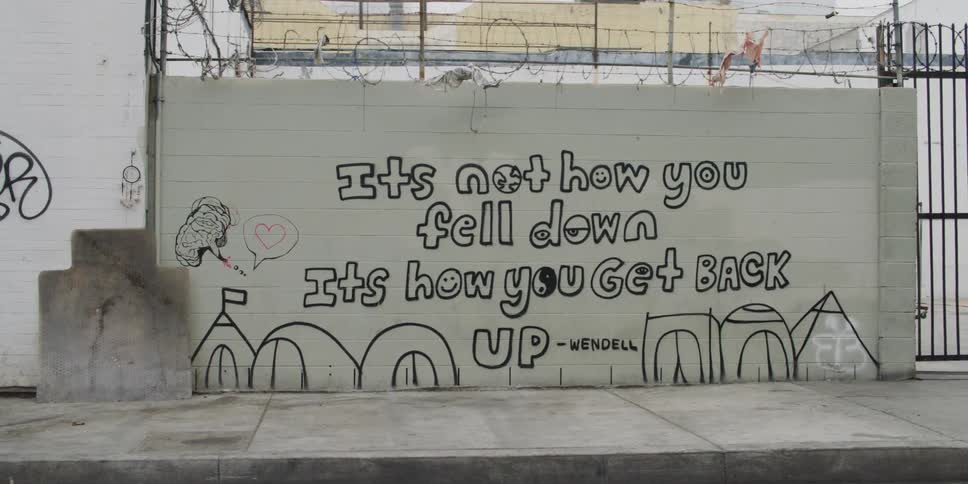 Its not how you
fell down
Its how you Get BACK
UP -WENDELL